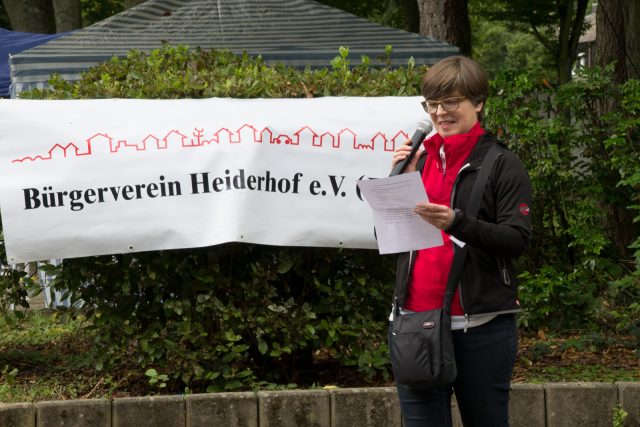 Bürgerverein Heiderhof e.V. (